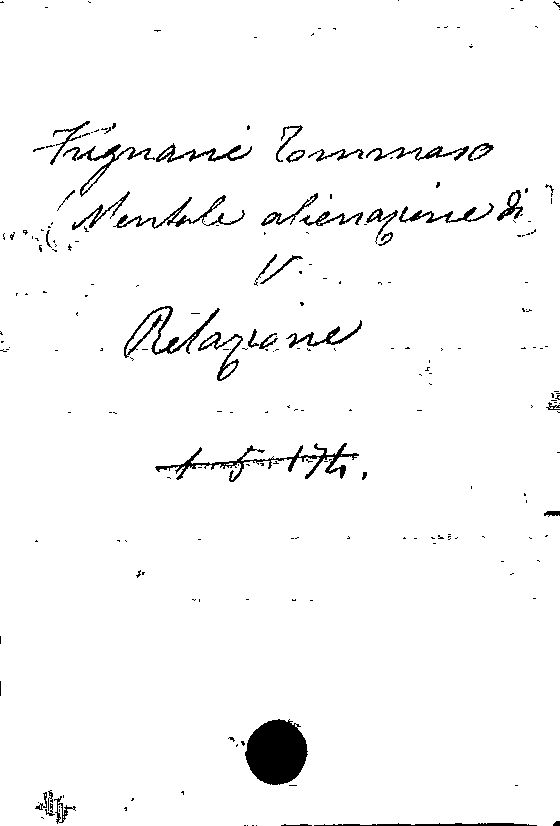 Frignani Tommaso
(Mentale alienazione di)
V.
Relazione
1 5 174.